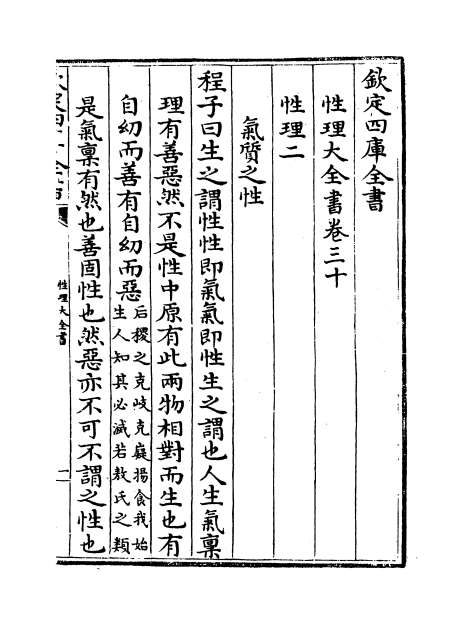 欽定四庫全書
性理大全書卷三十
性理二
氣質之性
程子曰生之謂性性即氣氣即性生之謂也人生氣稟
理有善惡然不是性中原有此兩物相對而生也有
自幼而善有自幼而惡后稷之克岐克嶷揚食我始生人知其必滅若敖氏之類
是氣稟有然也善固性也然惡亦不可不謂之性也
性理大全書